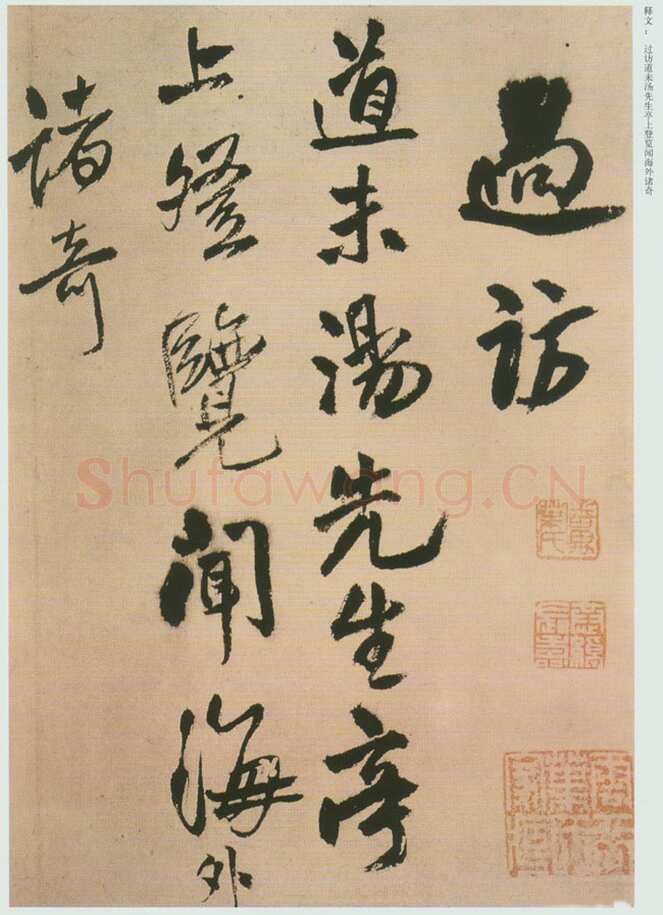 释文： 过访道未汤先生亭上登览闻海外诸奇
過訪
道未湯先生亭
上登覽聞海外
諸奇
Shufawang.CN